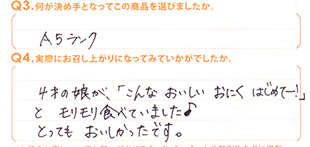 Q3.何が決め手となってこの商品を選びましたか。
A5ランク
Q4.実際にお召し上がりになってみていかがでしたか。
4才の娘が、「こんな おいしい おにく はじめてー!」
と モリモリ食べていました♪
とっても おいしかったです。